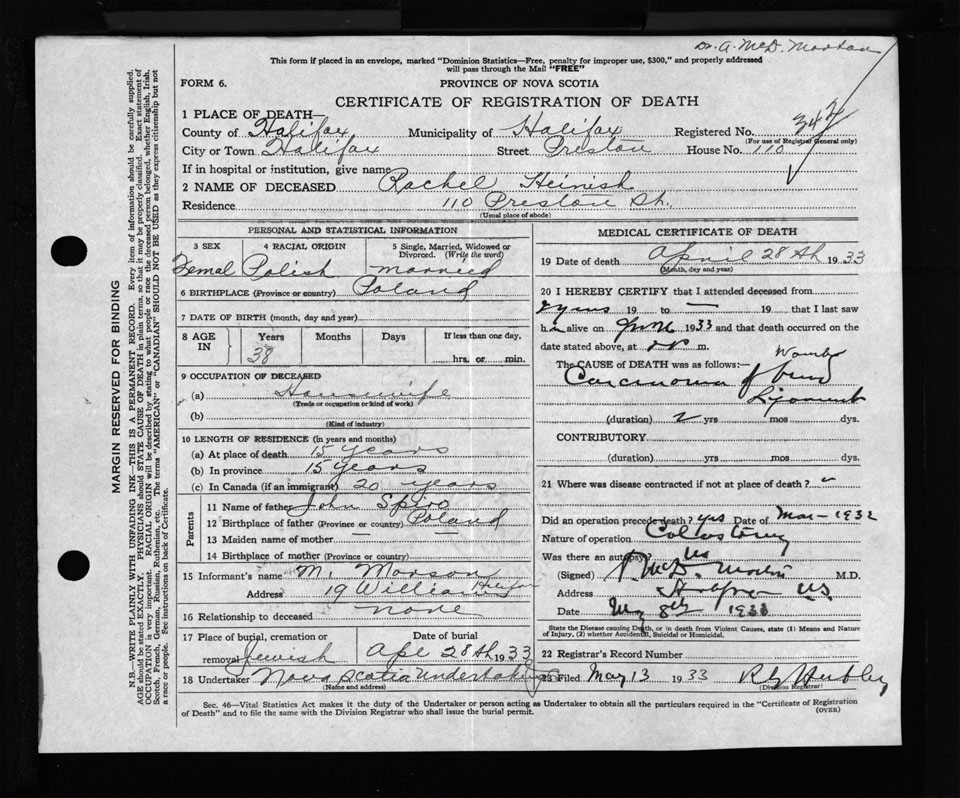 Dr. A. McD. Morton
This form if placed in an envelope, marked "Dominion Statistics—Free, penalty for improper use, $300," and properly addressed
will pass through the Mail "FREE"
FORM 6.
PROVINCE OF NOVA SCOTIA
CERTIFICATE OF REGISTRATION OF DEATH
1 PLACE OF DEATH—
County of Halifax Municipality of Halifax Registered No. 342
(For use of Registrar General only)
City or Town Halifax Street Preston House No. 110
If in hospital or institution, give name
2 NAME OF DECEASED Rachel Heinish
Residence 110 Preston St.
(Usual place of abode)
PERSONAL AND STATISTICAL INFORMATION
3 SEX 4 RACIAL ORIGIN 5 Single, Married, Widowed or
Divorced. (Write the word)
Femal Polish married
6 BIRTHPLACE (Province or country) Poland
7 DATE OF BIRTH (month, day and year)
8 AGE IN Years Months Days If less than one day,
38 hrs. or min.
9 OCCUPATION OF DECEASED
(a) Housewife
(Trade or occupation or kind of work)
(b)
(Kind of industry)
10 LENGTH OF RESIDENCE (in years and months)
(a) At place of death 15 years
(b) In province 15 years
(c) In Canada (if an immigrant) 20 years
Parents
11 Name of father John Spiro
12 Birthplace of father (Province or country) Poland
13 Maiden name of mother —
14 Birthplace of mother (Province or country)
15 Informant's name M. Morson
Address 19 William Halifax
16 Relationship to deceased none
17 Place of burial, cremation or Date of burial
removal Jewish Apl 28th 1933
18 Undertaker Nova Scotia Undertaking
(Name and address)
MEDICAL CERTIFICATE OF DEATH
19 Date of death April 28th 1933
(Month, day and year)
20 I HEREBY CERTIFY that I attended deceased from
2 yrs 19 to — 19 that I last saw
h alive on 1933 and that death occurred on the
date stated above, at m.
The CAUSE of DEATH was as follows:—
Carcinoma of Womb
(duration) 2 yrs mos dys.
CONTRIBUTORY
(duration) yrs mos dys.
21 Where was disease contracted if not at place of death?
Did an operation precede death? yes Date of Mar – 1932
Nature of operation Colostomy
Was there an autopsy? No
(Signed) A. McD. Morton M.D.
Address Halifax N.S.
Date May 8th 1933
State the Disease causing Death, or in death from Violent Causes, state (1) Means and Nature
of Injury, (2) whether Accidental, Suicidal or Homicidal.
22 Registrar's Record Number
23 Filed May 13 1933
(Division Registrar)
Sec. 46—Vital Statistics Act makes it the duty of the Undertaker or person acting as Undertaker to obtain all the particulars required in the "Certificate of Registration
of Death" and to file the same with the Division Registrar who shall issue the burial permit.
(OVER)
MARGIN RESERVED FOR BINDING
N.B.—WRITE PLAINLY WITH UNFADING INK—THIS IS A PERMANENT RECORD. Every item of information should be carefully supplied.
AGE should be stated EXACTLY. PHYSICIANS should STATE CAUSE OF DEATH in plain terms, so that it may be properly classified. Exact statement of
OCCUPATION is very important. RACIAL ORIGIN will be described by stating to what people or race the deceased person belonged, whether English, Irish,
Scotch, French, German, Russian, Ruthenian, etc. The terms "AMERICAN" or "CANADIAN" SHOULD NOT BE USED as they express citizenship but not
a race or people. See instructions on back of Certificate.